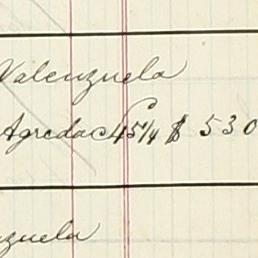 Valenzuela
Agredac 45/4 $ 530
zuela